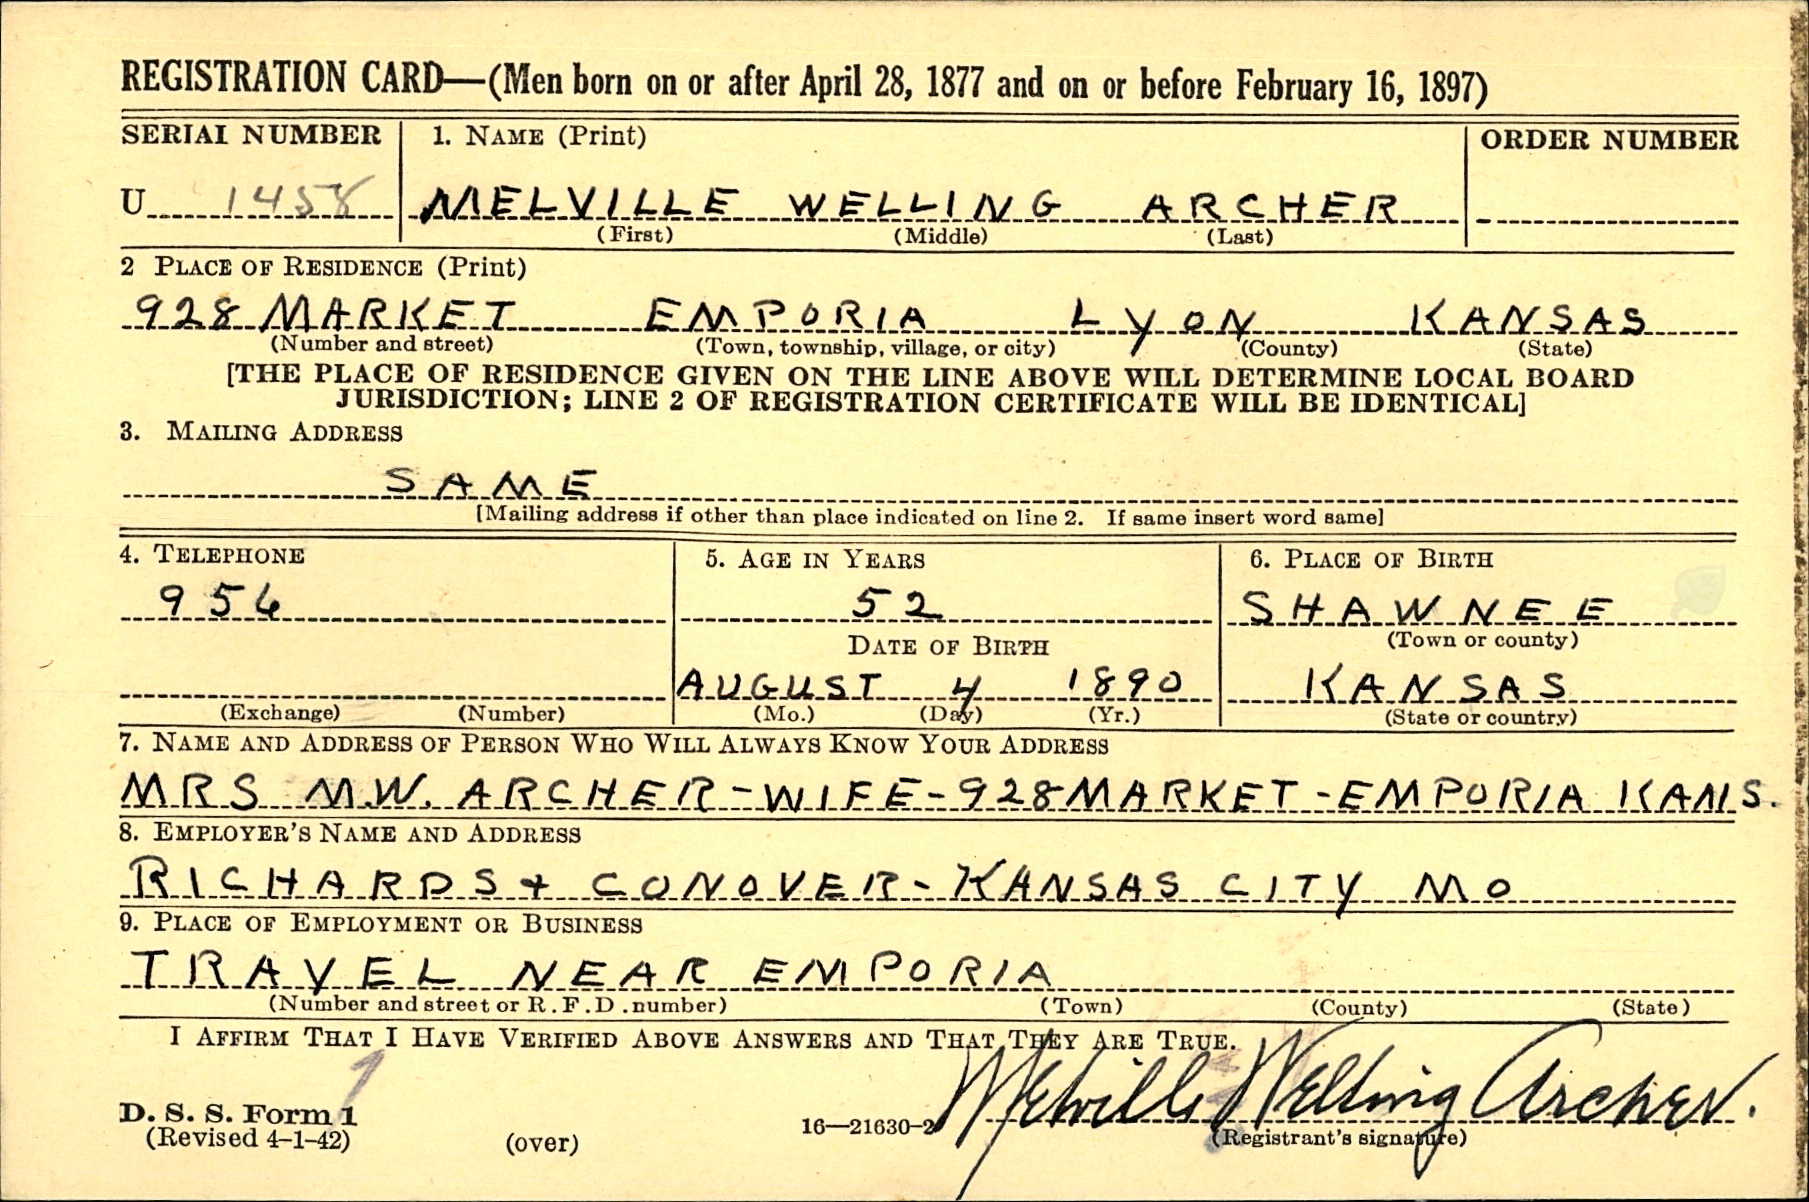 REGISTRATION CARD—(Men born on or after April 28, 1877 and on or before February 16, 1897)
SERIAL NUMBER 1. NAME (Print) ORDER NUMBER
U 1458 MELVILLE WELLING ARCHER
(First) (Middle) (Last)
2 PLACE OF RESIDENCE (Print)
928 MARKET EMPORIA LYON KANSAS
(Number and street) (Town, township, village, or city) (County) (State)
[THE PLACE OF RESIDENCE GIVEN ON THE LINE ABOVE WILL DETERMINE LOCAL BOARD
JURISDICTION; LINE 2 OF REGISTRATION CERTIFICATE WILL BE IDENTICAL]
3. MAILING ADDRESS
SAME
[Mailing address if other than place indicated on line 2. If same insert word same]
4. TELEPHONE 5. AGE IN YEARS 6. PLACE OF BIRTH
956 52 SHAWNEE
DATE OF BIRTH (Town or county)
AUGUST 4 1890 KANSAS
(Exchange) (Number) (Mo.) (Day) (Yr.) (State or country)
7. NAME AND ADDRESS OF PERSON WHO WILL ALWAYS KNOW YOUR ADDRESS
MRS M.W. ARCHER-WIFE-928 MARKET-EMPORIA KANS.
8. EMPLOYER'S NAME AND ADDRESS
RICHARDS + CONOVER-KANSAS CITY MO
9. PLACE OF EMPLOYMENT OR BUSINESS
TRAVEL NEAR EMPORIA
(Number and street or R.F.D. number) (Town) (County) (State)
I AFFIRM THAT I HAVE VERIFIED ABOVE ANSWERS AND THAT THEY ARE TRUE.
1
D. S. S. Form 1 Melville Welling Archer.
(Revised 4-1-42) (over) 16—21630-2 (Registrant's signature)